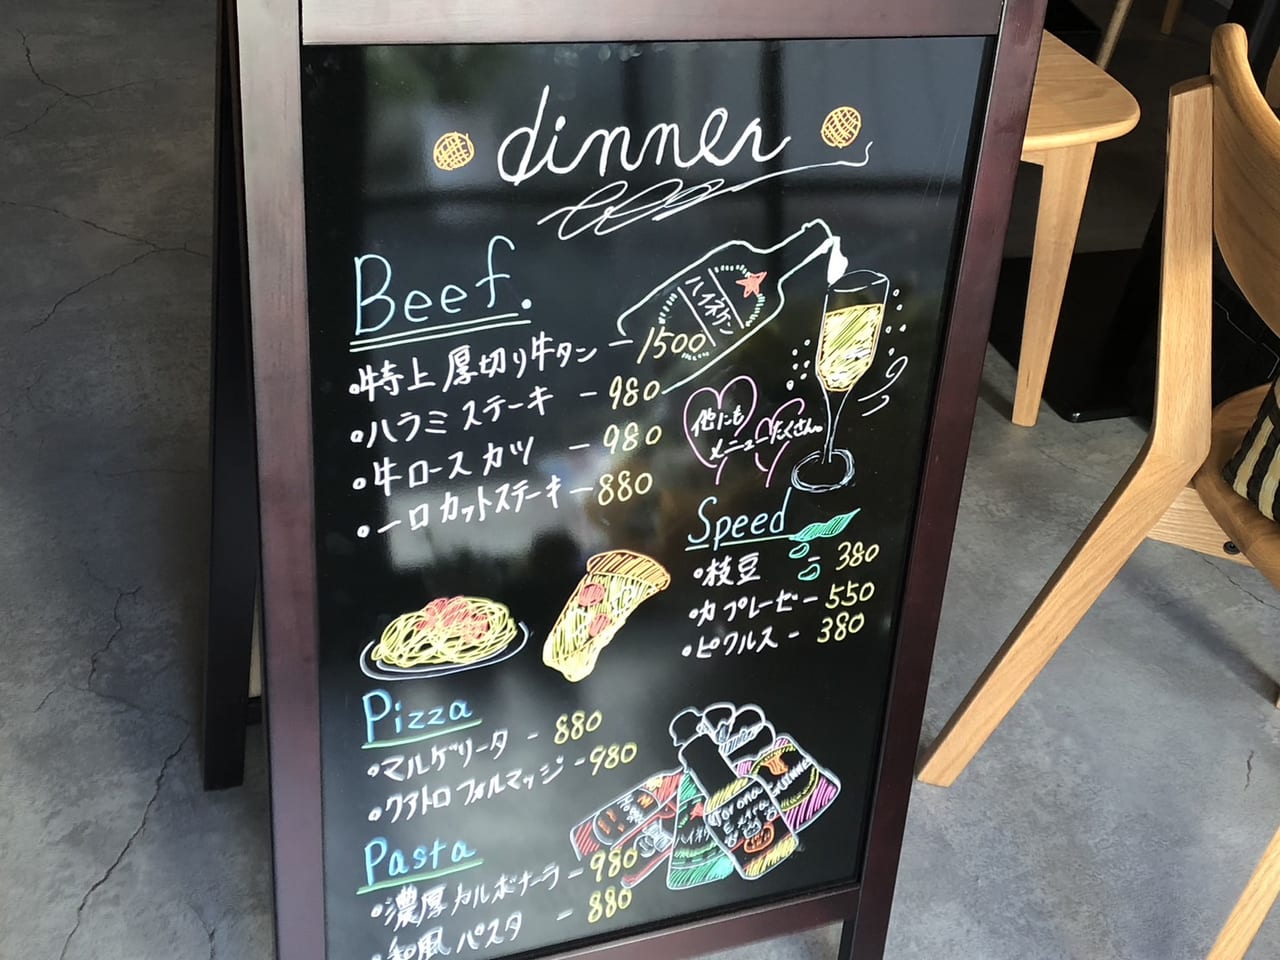 dinner
Beef.
•特上厚切り牛タン - 1500
•ハラミステーキ - 980
•牛ロースカツ - 980
•一口カットステーキ - 880
ハイネケン
他にも
メニューたくさん。
Speed
•枝豆 - 380
•カプレーゼ - 550
•ピクルス - 380
Pizza
•マルゲリータ - 880
•クアトロフォルマッジ - 980
Pasta
•濃厚カルボナーラ - 980
•和風パスタ - 880
ハイネケ
Corona
Extra